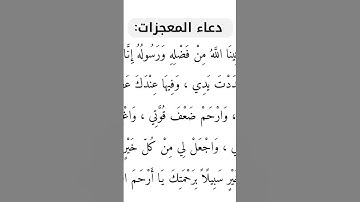 دعاء المعجزات:
اللَّهُ مِنْ فَضْلِهِ وَرَسُولُهُ إِنَّا
يَدِي ، وَفِيهَا عِنْدَكَ
، وَارْحَمْ ضَعْفَ قُوَّتِي ،
، وَاجْعَلْ لِي مِنْ كُلِّ خَيْرٍ
سَبِيلاً بِرَحْمَتِكَ يَا أَرْحَمَ